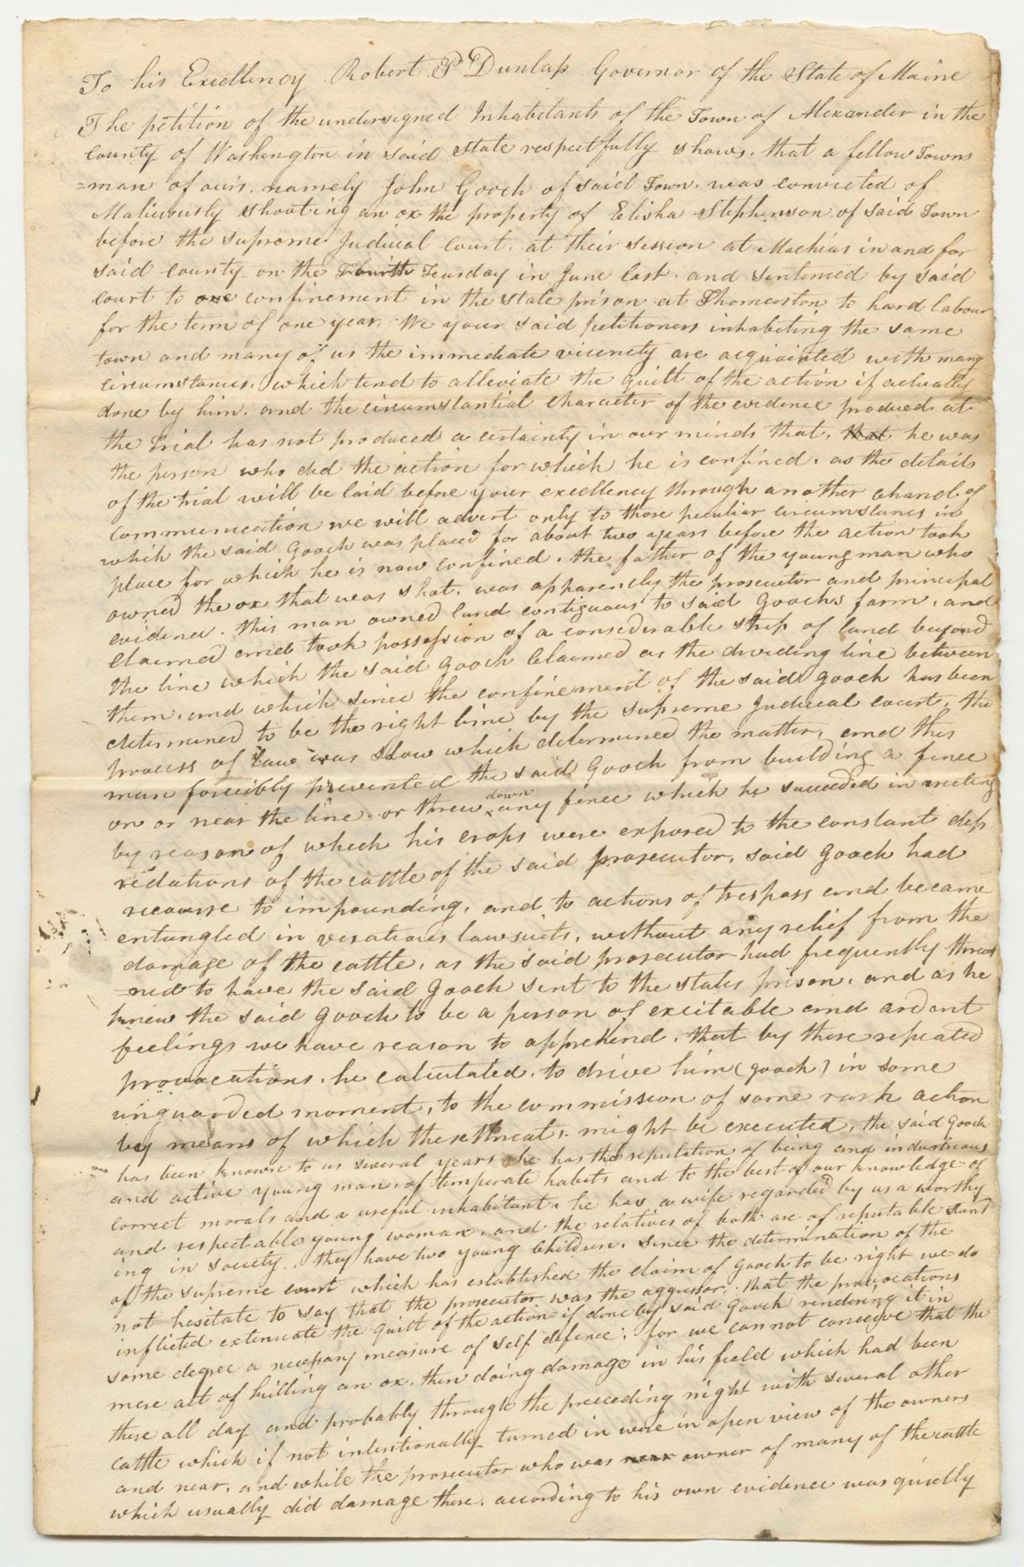 To his Excellency Robert P Dunlap Governor of the State of Maine
The petition of the undersigned Inhabitants of the Town of Alexander in the
County of Washington in said State respectfully shows. that a fellow Towns
=man of ours. namely John Gooch of said Town. was convicted of
Maliciously shooting an ox the property of Elisha Stephenson of said Town
before the supreme Judicial Court. at their session at Machias in and for
said county on the Fourth Teusday in June last. and sentenced by said
court to one confinement in the state prison at Thomaston to hard labour
for the term of one year. We your said petitioners inhabiting the same
town and many of us the immediate vicenity are acquainted with many
circumstances. which tend to alleviate the guilt of the action if actually
done by him. and the circumstantial character of the evidence produced at
the Trial has not produced a certainty in our minds that. that he was
the person who did the action for which he is confined. as the details
of the trial will be laid before your excellency through another Chanel of
communication we will advert only to those peculiar circumstances in
which the said Gooch was placed for about two years before the action took
place for which he is now confined. the father of the young man who
owned the ox that was shot. was apparently the prosecutor and principal
evidence. this man owned land contiguous to said Goochs farm. and
Claimed and took possession of a considerable strip of land beyond
the line which the said Gooch Claimed as the dividing line between
them. and which since the confinement of the said Gooch has been
determined to be the right line by the supreme Judicial court. the
process of law was slow which determined the matter. and this
man forcibly prevented the said Gooch from building a fence
on or near the line. or threw down any fence which he succeeded in erecting
by reason of which his crops were exposed to the constant dep
redations of the cattle of the said prosecutor. said Gooch had
recourse to impounding. and to actions of trespass and became
entangled in vexatious lawsuits. without any relief from the
damage of the cattle. as the said prosecutor had frequently threat
=ned to have the said Gooch sent to the states prison. and as he
knew the said Gooch to be a person of excitable and ardent
feelings we have reason to apprehend. that by these repeated
provocations. he calculated. to drive him (Gooch) in some
unguarded moment, to the commission of some rash action
by means of which these threats. might be executed. the said Gooch
has been known to us several years he has the reputation of being and industrious
and active young man. of temperate habits and to the best of our knowledge of
correct morals and a useful inhabitant. he has a wife regarded by us a worthy
and respectable young woman. and the relatives of both are of reputable stand
ing in society. they have two young Children. since the determination of the
of the supreme court which has established the claim of Gooch to be right we do
not hesitate to say that the prosecutor was the aggressor. that the provocations
inflicted extenuate the guilt of the action if done by said Gooch rendering it in
some degree a necessary measure of self defence. for we cannot conceive that the
mere act of killing an ox. then doing damage in his field which had been
there all day and probably through the preceeding night with several other
cattle which if not intentionally turned in were in open view of the owners
and near. and while the prosecutor who was owner of many of the cattle
which usually did damage there. according to his own evidence was quietly